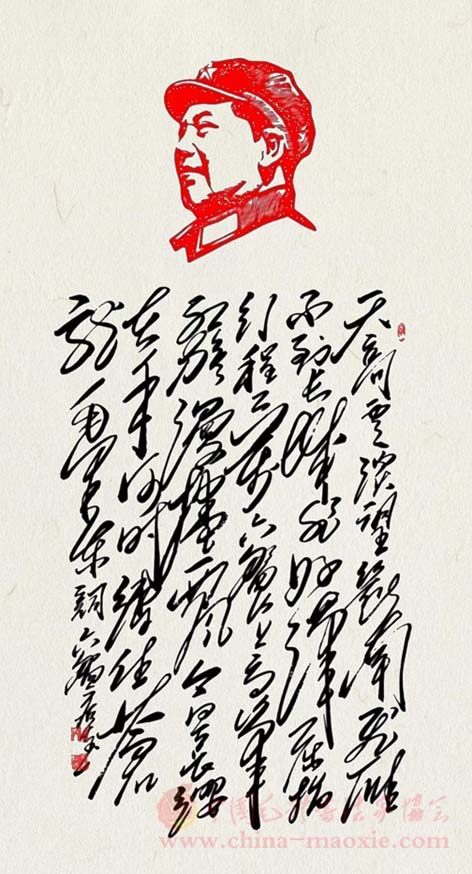 天高雲淡望斷南飛雁
不到长城非好漢屈指
行程二万六盤山上高峰
红旗漫捲西風今日长缨
在手何时缚住苍
龙 毛泽东 詞 六盤
www.china-maoxie.com